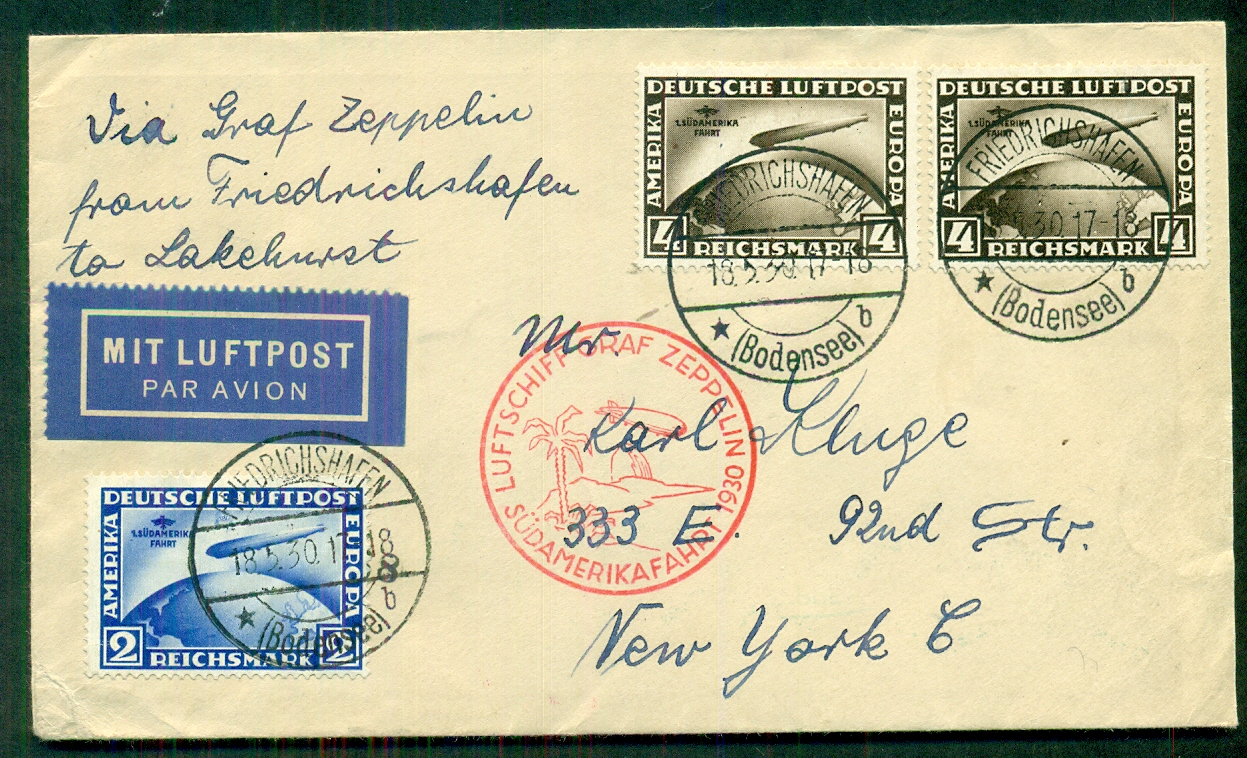 Via Graf Zeppelin
from Friedrichshafen
to Lakehurst
MIT LUFTPOST
PAR AVION
DEUTSCHE LUFTPOST
AMERIKA
EUROPA
1.SÜDAMERIKA
FAHRT
4 REICHSMARK 4
DEUTSCHE LUFTPOST
AMERIKA
EUROPA
1.SÜDAMERIKA
FAHRT
4 REICHSMARK 4
FRIEDRICHSHAFEN
18.5.30.17-18
b
(Bodensee)
FRIEDRICHSHAFEN
5.30.17-18
b
(Bodensee)
Mr.
Karl Kluge
333 E. 92nd Str.
New York C
LUFTSCHIFF GRAF ZEPPELIN
SÜDAMERIKAFAHRT 1930
DEUTSCHE LUFTPOST
AMERIKA
EUROPA
1.SÜDAMERIKA
FAHRT
2 REICHSMARK 2
FRIEDRICHSHAFEN
18.5.30.17-18
8
b
(Bodensee)